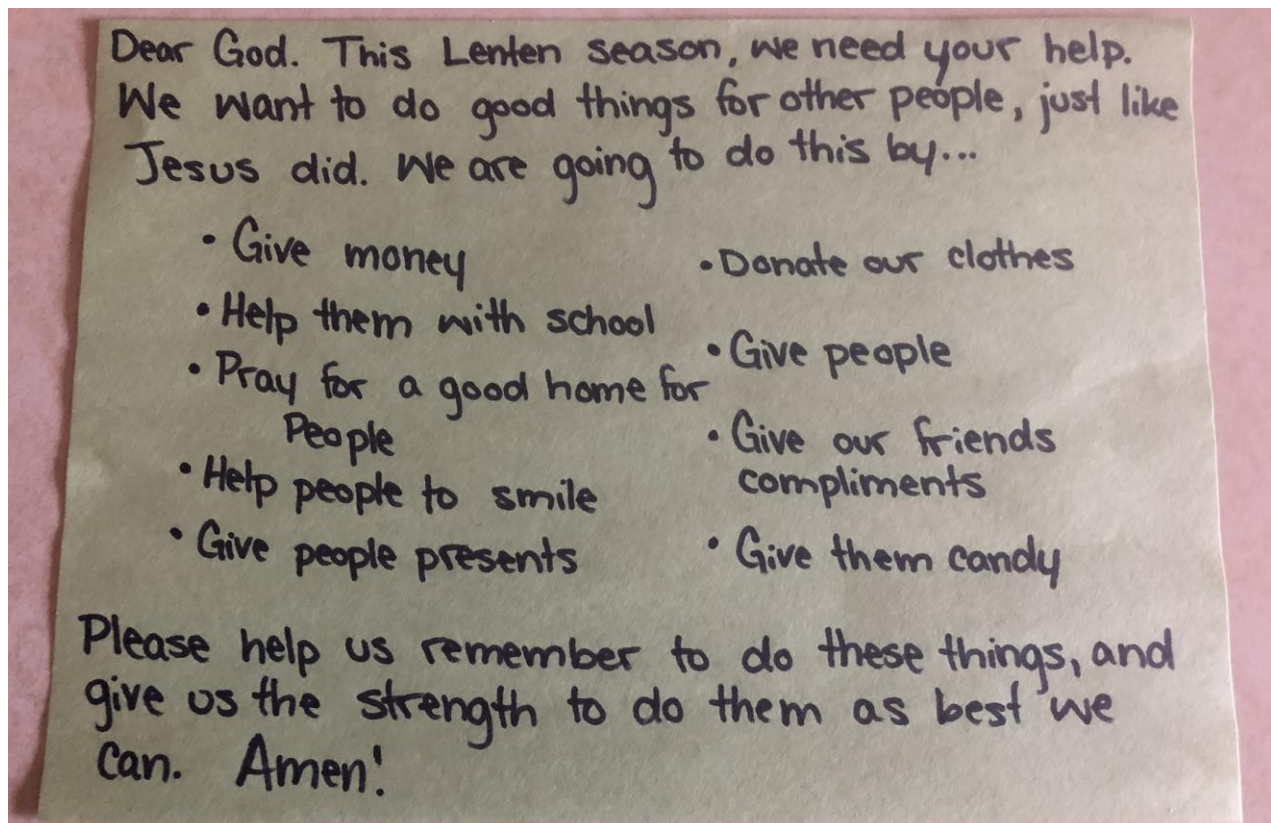 Dear God. This Lenten season, we need your help.
We want to do good things for other people, just like
Jesus did. We are going to do this by...
• Give money
• Help them with school
• Pray for a good home for
People
• Help people to smile
• Give people presents
• Donate our clothes
• Give people
• Give our friends
compliments
• Give them candy
Please help us remember to do these things, and
give us the strength to do them as best we
can. Amen!